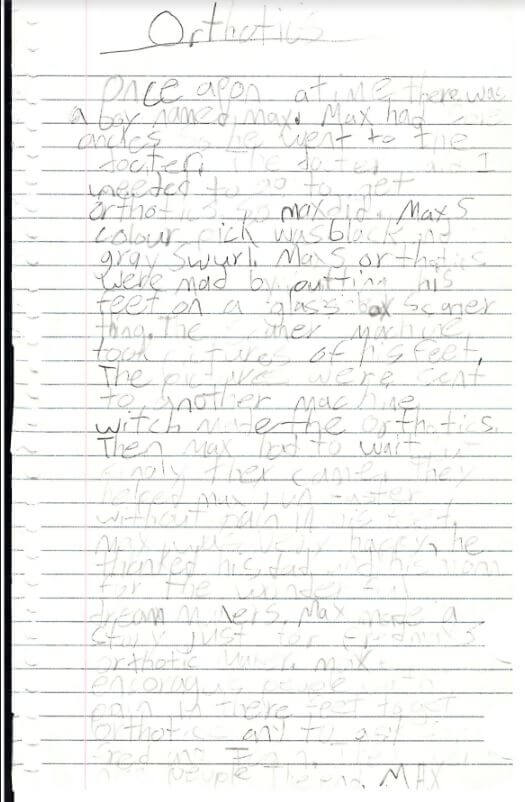 Orthotics
Once apon at ime, there was
a boy named max. Max had
ancles he went to the
docter. The docter I
needed to go to get
orthotics so max did. Max,s
colour pick was black and
gray swurl. Max,s orthotics
were mad by putting his
feet on a glass box scaner
thing. The scaner machine
took pictures of his feet.
The picture were sent
to another machine
witch made the orthotics.
Then Max had to wait
they came. They
helped max run faster
without pain in his feet.
Max was very happy, he
thanked his dad and his mom
for the wonderful
dream makers. Max made a
story just for
orthotic Max
encorages people with
pain in there feet to get
orthotics and to
fred
people The end. MAX